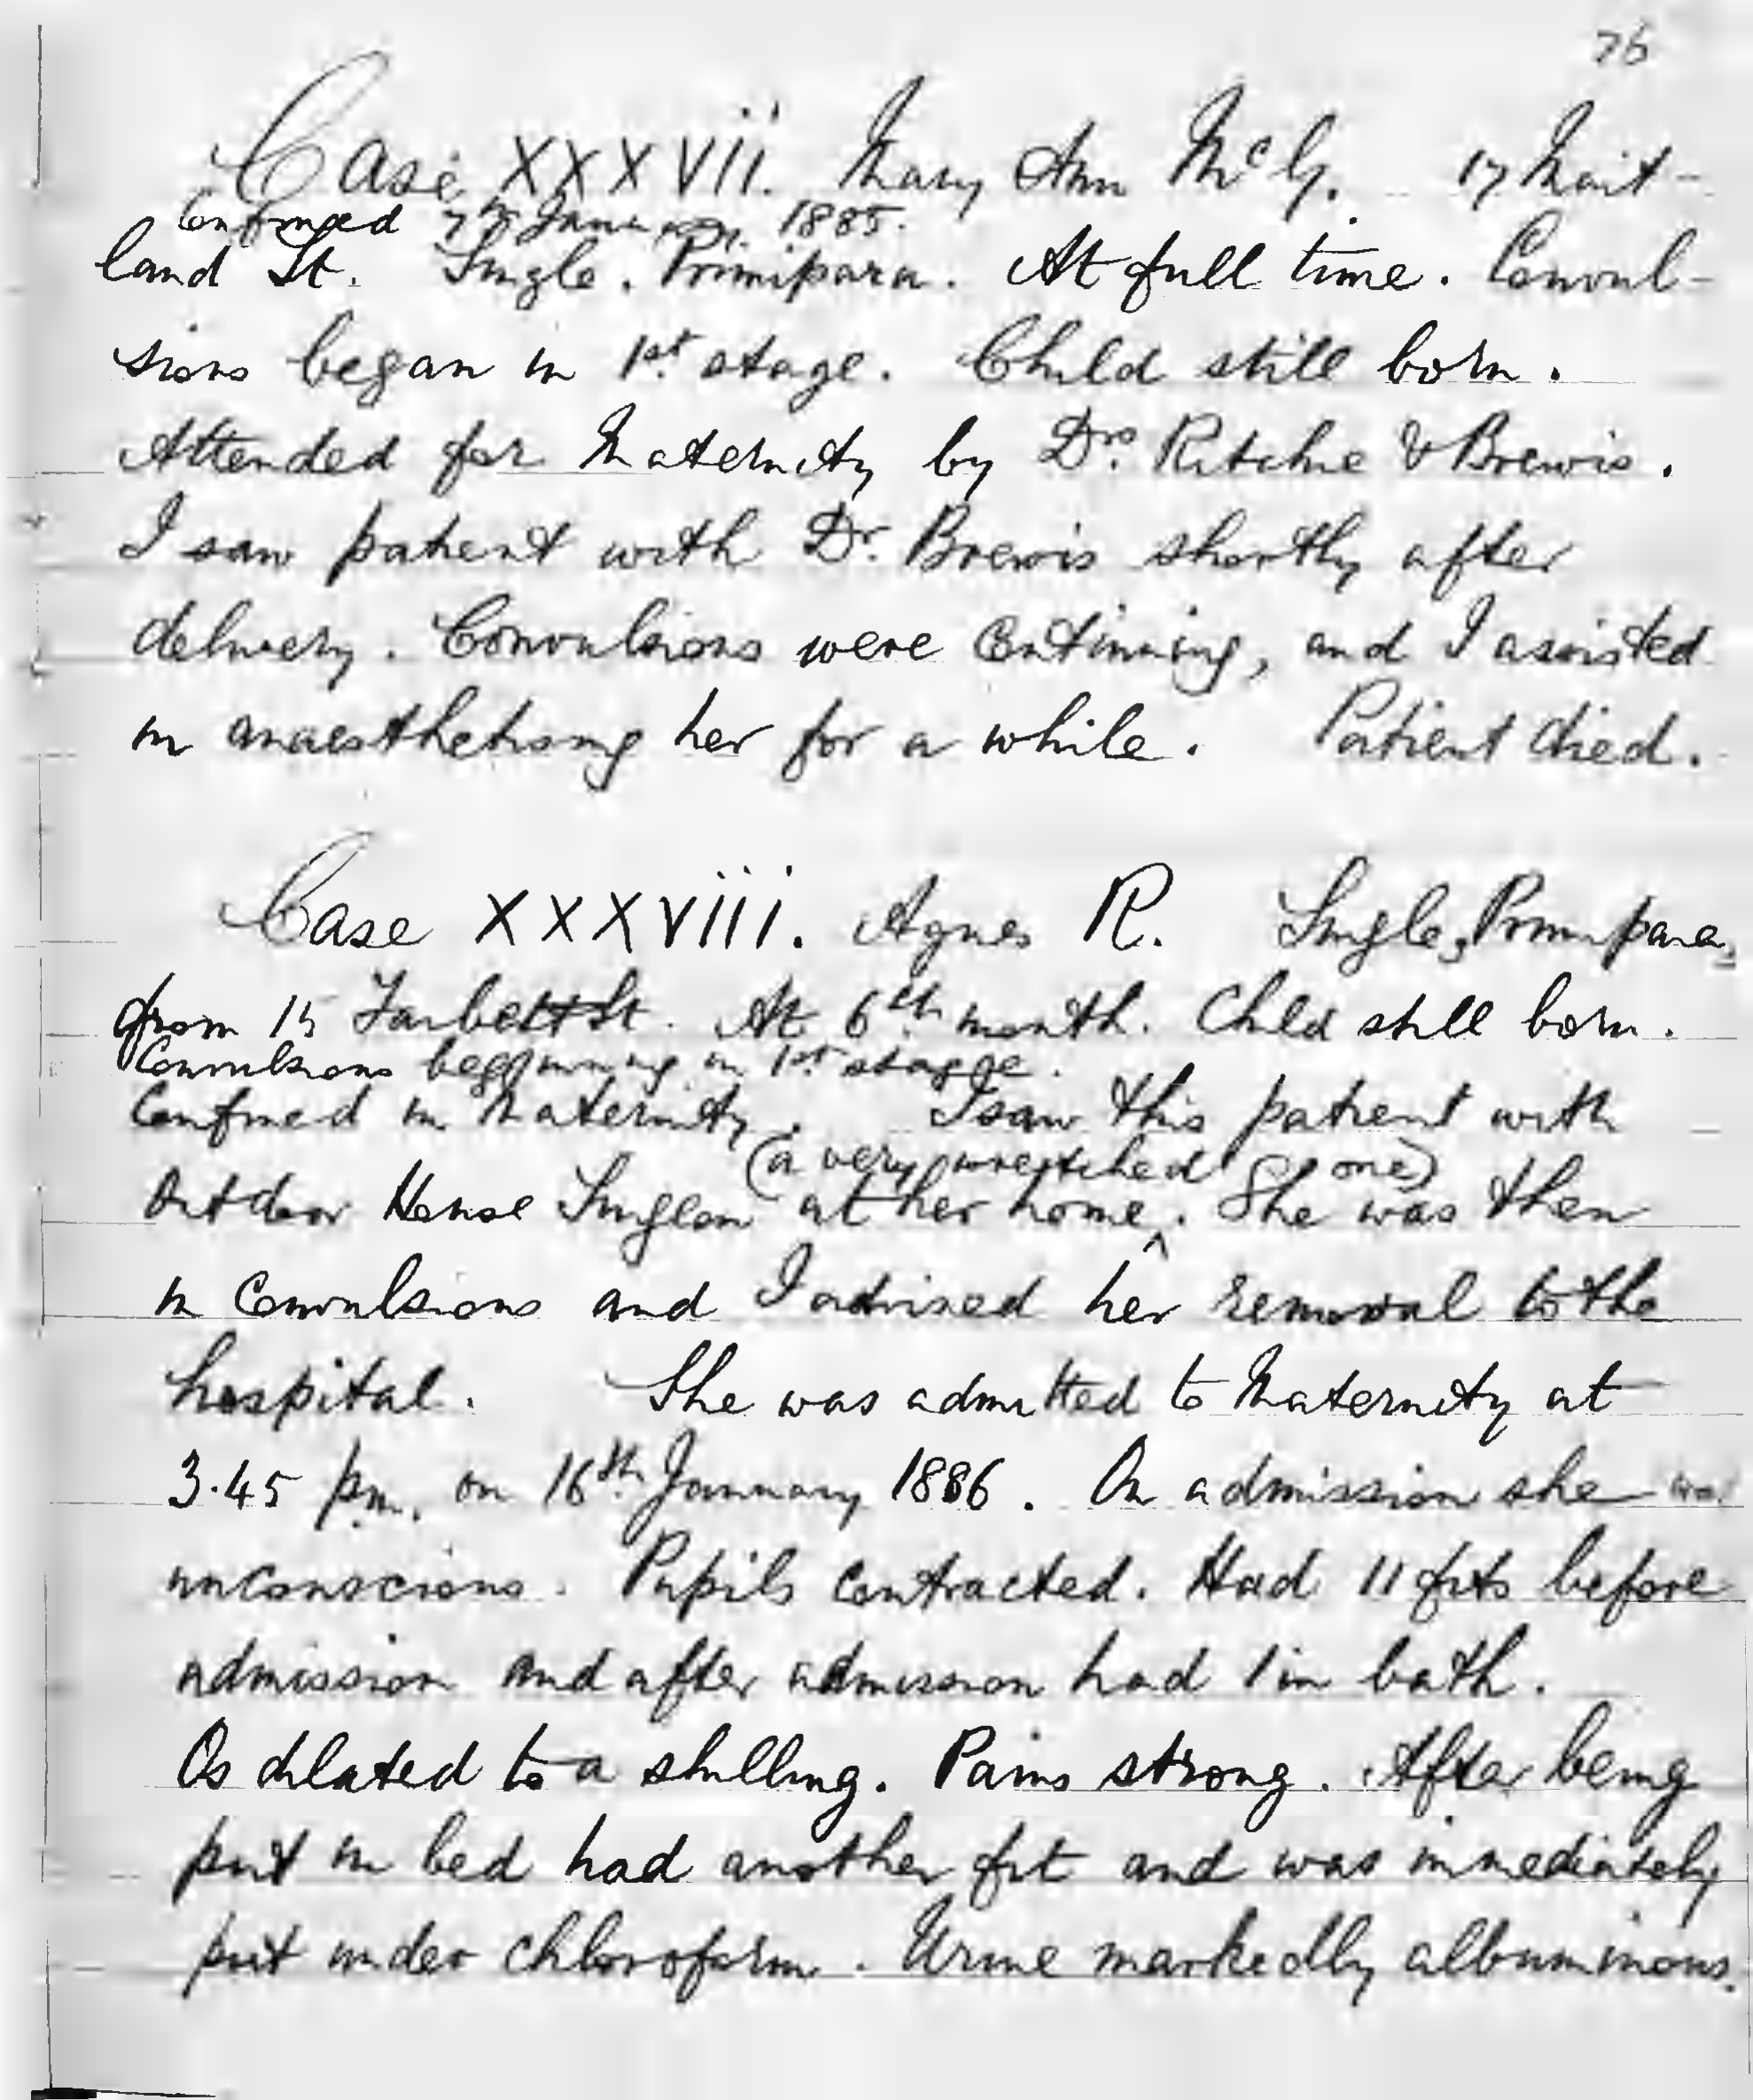 76
Case XXXVii. Mary Ann McG. 17 Mait-
Confined 7th January. 1885.
land St. Single. Primipara. At full time. Convul-
sions began in 1st stage. Child still born.
Attended for Maternity by Drs Ritchie & Brewis.
I saw patient with Dr. Brewis shortly after
delivery. Convulsions were continuing, and I assisted
in anaesthetising her for a while. Patient died.
Case XXXViii. Agnes R. Single, Primipara,
from 15 St. At 6th month. Child still born.
Convulsions beginning in 1st stage.
Confined in Maternity. I saw this patient with
(a very wretched one)
Outdoor House Surgeon at her home. She was then
in convulsions and I advised her removal to the
hospital. She was admitted to Maternity at
3.45 pm. on 16th January 1886. On admission she was
unconscious. Pupils contracted. Had 11 fits before
admission and after admission had 1 in bath.
Os dilated to a shilling. Pains strong. After being
put in bed had another fit and was immediately
put under chloroform. Urine markedly albuminous.